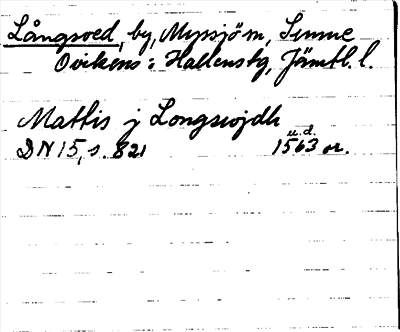 Långsved, by, Myssjö sn, Sunne
Ovikens o Hallens tg, Jämtl. l.
Mattis j Longswjdh
u.d.
DN 15, s. 821 1563 or.